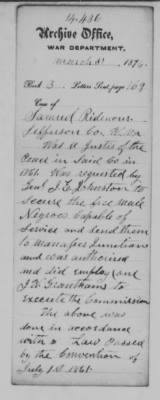 14,436
Archive Office,
WAR DEPARTMENT,
March 8 1876
Book 3 Letters Sent, page 169
Case of
Samuel Ridenour
Jefferson Co. W. Va
Was a Justice of the
Peace in Said Co in
1861. Was requested by
Genl J. E. Johnston to
secure the free male
Negroes Capable of
Service and send them
to Manassas Junction
and was authorized
and did employ one
J. W. Grantham to
execute the Commission
The above was
done in accordance
with a Law passed
by the Convention of
July 1st 1861.